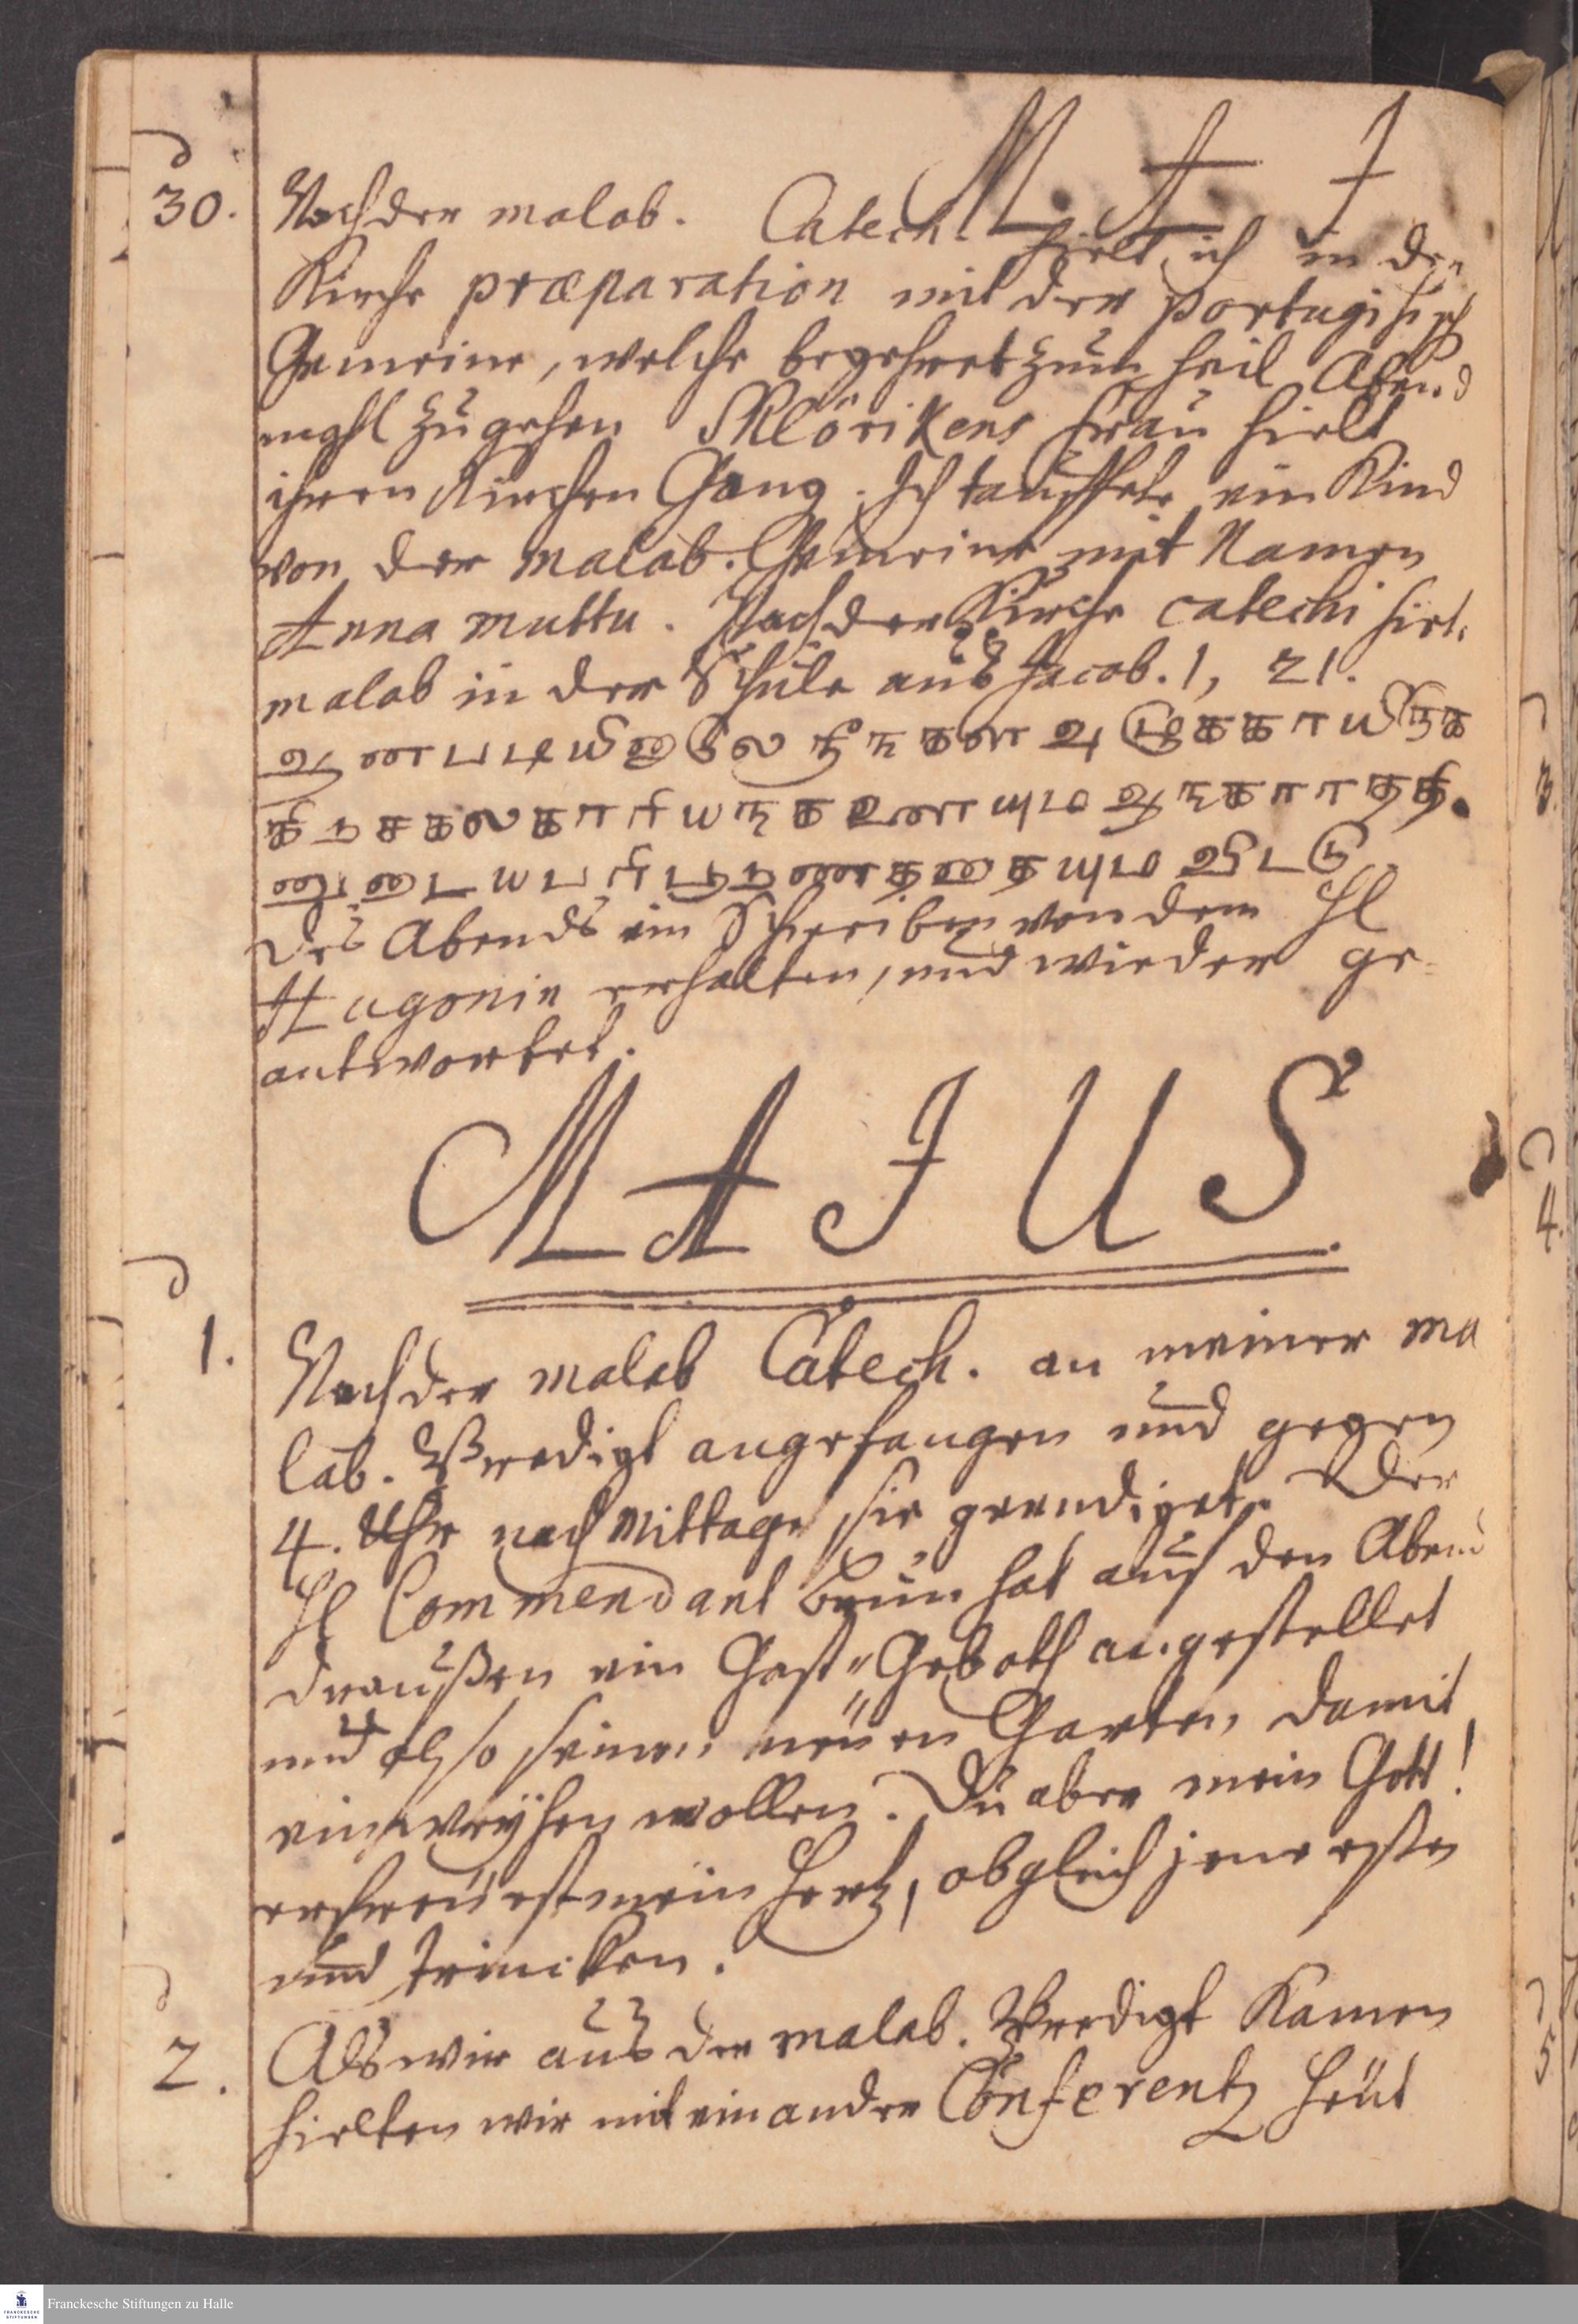 M A J
30. Nach der malab. Catech. hielt ich in der
Kirche præparation mit der portugisisch
Gemeine, welche begehret zum heil Abend
mahl zu gehen Sklörikens Frau hielt
ihren Kirchen Gang. Ich tauffete ein Kind
von der malab. Gemeine mit Namen
Anna muttu. Nach der Kirche catechisirt.
malab in der Schule aus Jacob. 1, 21.
des Abends ein Schreiben von dem H
Hugonin erhalten, und wieder ge=
antwortet.
MAJUS.
1. Nach der malab Catech. an meiner ma
lab. Predigt angefangen und gegen
4. Uhr nach Mittage sie geendiget. Der
H Commendant Brün hat auf den Abend
draußen ein Gast=Geboth angestellet
und also seinen neuen Garten damit
einweyhen wollen. Du aber mein Gott!
erfreuest mein Hertz, obgleich jene eßen
und trincken.
2. Als wir aus der malab. Predigt Kamen
hielten wir mit einander Conferentz heut
Franckesche Stiftungen zu Halle